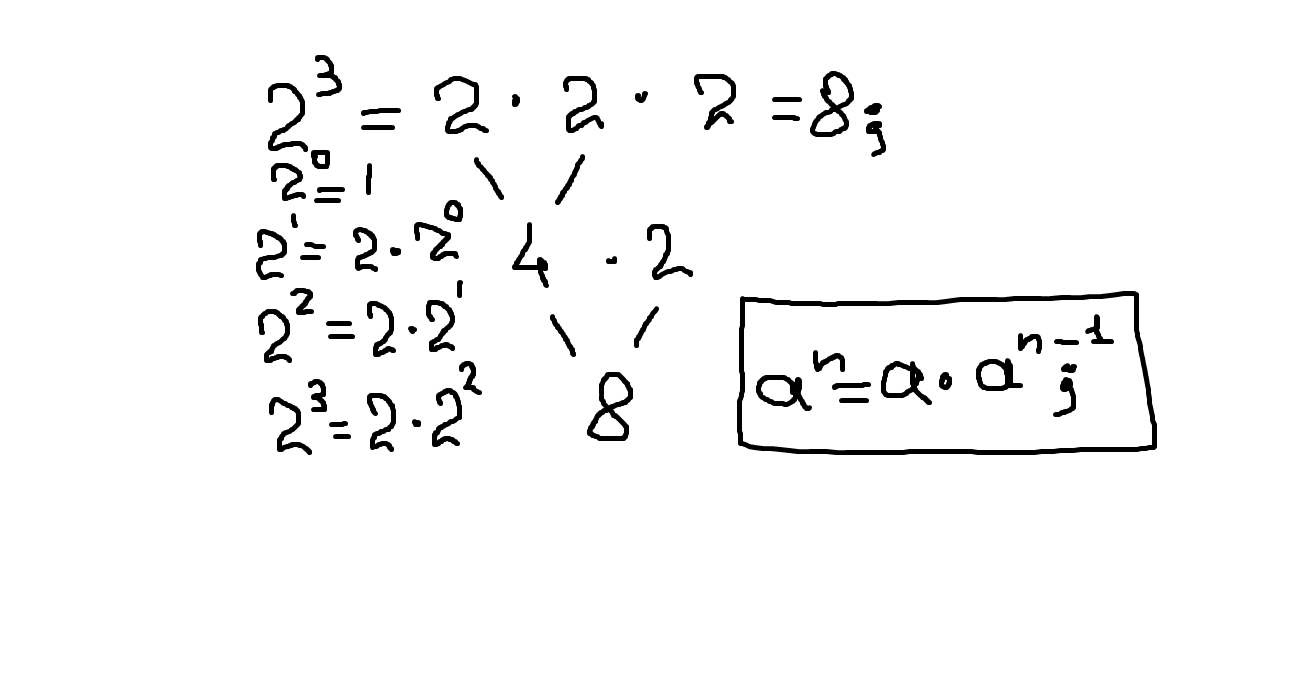 2³ = 2 · 2 · 2 = 8;
2⁰ = 1
2¹ = 2 · 2⁰
4 · 2
2² = 2 · 2¹
8
2³ = 2 · 2²
aⁿ = a · aⁿ⁻¹;